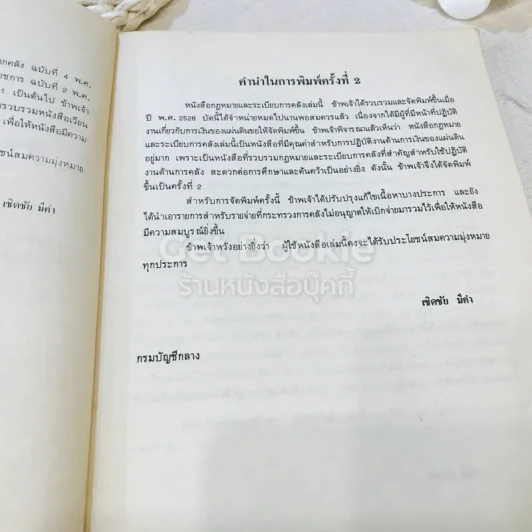 กคลัง ฉบับที่ 4 พ.ศ.
ชการ ฉบับที่ 2 พ.ศ.
1 เป็นต้นไป ข้าพเจ้า
รวบรวมหนังสือเรียน
เพื่อให้หนังสือมีความ
ชน์สมความมุ่งหมาย
เชิดชัย มีคำ
คำนำในการพิมพ์ครั้งที่ 2
หนังสือกฎหมายและระเบียบการคลังเล่มนี้ ข้าพเจ้าได้รวบรวมและจัดพิมพ์ขึ้นเมื่อ
ปี พ.ศ. 2528 บัดนี้ได้จำหน่ายหมดไปนานพอสมควรแล้ว เนื่องจากได้มีผู้ที่มีหน้าที่ปฏิบัติ
งานเกี่ยวกับการเงินของแผ่นดินขอให้จัดพิมพ์ขึ้น ข้าพเจ้าพิจารณาแล้วเห็นว่า หนังสือกฎหมาย
และระเบียบการคลังเล่มนี้เป็นหนังสือที่มีคุณค่าสำหรับการปฏิบัติงานด้านการเงินของแผ่นดิน
อยู่มาก เพราะเป็นหนังสือที่รวบรวมกฎหมายและระเบียบการคลังที่สำคัญสำหรับใช้ปฏิบัติ
งานด้านการคลัง สะดวกต่อการศึกษาและค้นคว้าเป็นอย่างยิ่ง ดังนั้น ข้าพเจ้าจึงได้จัดพิมพ์
ขึ้นเป็นครั้งที่ 2
สำหรับการจัดพิมพ์ครั้งนี้ ข้าพเจ้าได้ปรับปรุงแก้ไขเนื้อหาบางประการ และยัง
ได้นำเอารายการสำหรับรายจ่ายที่กระทรวงการคลังไม่อนุญาตให้เบิกจ่ายมารวมไว้เพื่อให้หนังสือ
มีความสมบูรณ์ยิ่งขึ้น
ข้าพเจ้าหวังอย่างยิ่งว่า ผู้ใช้หนังสือเล่มนี้คงจะได้รับประโยชน์สมความมุ่งหมาย
ทุกประการ
Get Bookie
ร้านหนังสือบุ๊คกี้
เชิดชัย มีคำ
กรมบัญชีกลาง